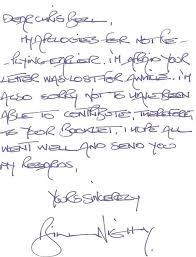 DEAR CHRIS BELL,
MY APOLOGIES FOR NOT RE-
PLYING EARLIER. I'M AFRAID YOUR
LETTER WAS LOST FOR AWHILE. I'M
ALSO SORRY NOT TO HAVE BEEN
ABLE TO CONTRIBUTE, THEREFORE,
TO YOUR BOOKLET. I HOPE ALL
WENT WELL AND SEND YOU
MY REGARDS.
YOURS SINCERELY
Bill Nighy